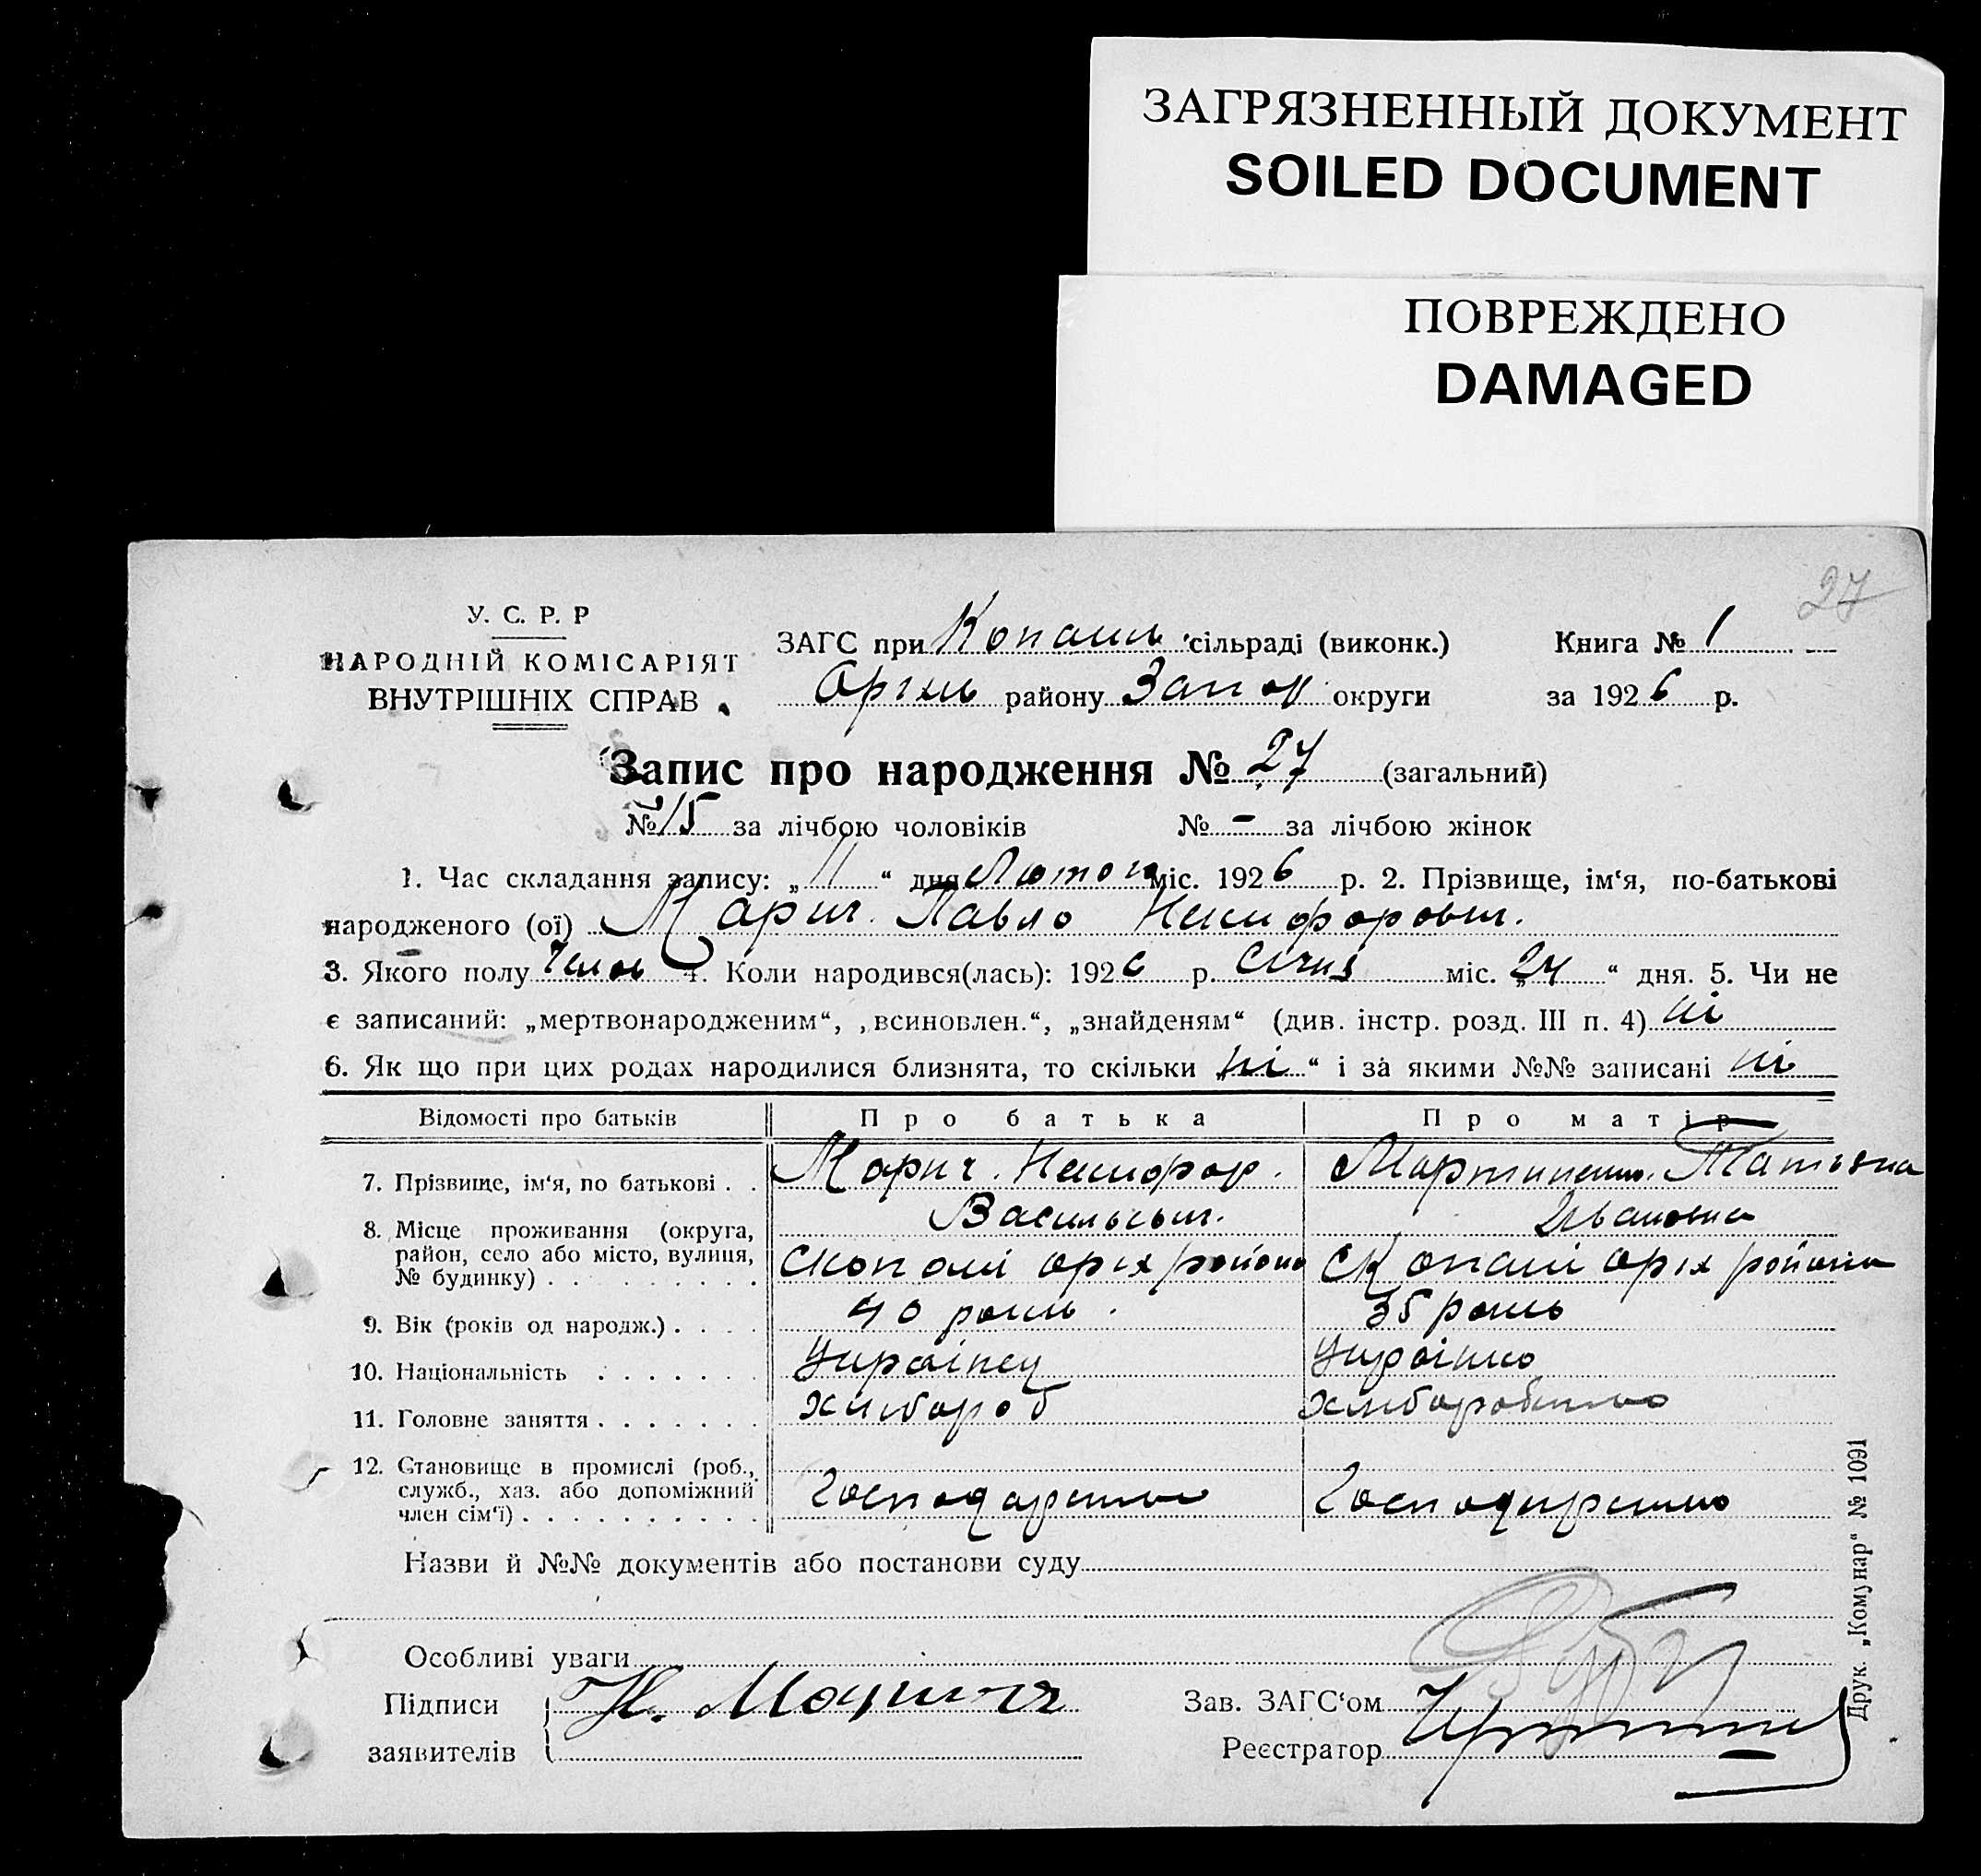 ЗАГРЯЗНЕННЫЙ ДОКУМЕНТ
SOILED DOCUMENT
ПОВРЕЖДЕНО
DAMAGED
27
У. С. Р. Р
НАРОДНІЙ КОМІСАРІЯТ
ВНУТРІШНІХ СПРАВ
ЗАГС при Копань сільраді (виконк.) Книга № 1
Оріхів району Запор округи за 1926 р.
Запис про народження № 27 (загальний)
№ 15 за лічбою чоловіків № - за лічбою жінок
1. Час складання запису: „11“ дня Лютого міс. 1926 р. 2. Прізвище, ім‘я, по-батькові
народженого (ої) Марич Павло Никифорович.
3. Якого полу Чолов 4. Коли народився(лась): 1926 р. Січня міс. „24“ дня. 5. Чи не
є записаний: „мертвонародженим“, „всиновлен.“, „знайденям“ (див. інстр. розд. III п. 4) ні
6. Як що при цих родах народилися близнята, то скільки „ні“ і за якими №№ записані ні
Відомості про батьків Про батька Про матір
7. Прізвище, ім‘я, по батькові . . Марич. Никифор. Мартиненко. Татьяна
Васильович. Ивановна
8. Місце проживання (округа,
район, село або місто, вулиця,
№ будинку) . . . . . . . . . С Копани оріх району С Копани оріх району
9. Вік (років од народж.) . . . . 40 років. 35 років
10. Національність . . . . . . . Українец Українка
11. Головне заняття . . . . . . . Хлибороб Хлиборобка
12. Становище в промислі (роб.,
служб., хаз. або допоміжний
член сім‘ї) . . . . . . . . . . Господарство Господарство
Назви й №№ документів або постанови суду
Особливі уваги
Підписи Н. Марич Зав. ЗАГС‘ом
заявителів Реєстратор
Друк. „Комунар“ № 1091